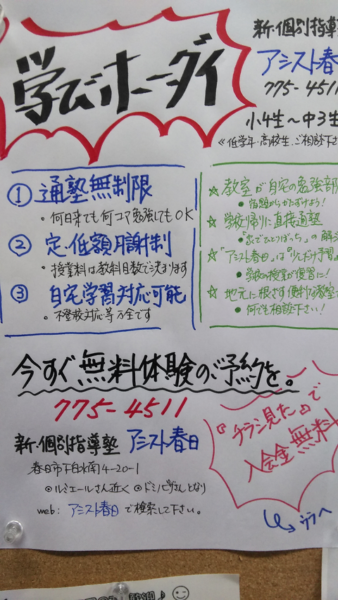 学びホーダイ
新・個別指導
アシスト春
775-4511
小4生～中3生
※低学年・高校生、ご相談下さ
① 通塾無制限
・何日来ても何コマ勉強してもOK
② 定・低額月謝制
・授業料は教科目数で決まります
③ 自宅学習対応可能
・不登校対応等万全です
☆ 教室が自宅の勉強部
☆ 学校帰りに直接通塾
☆ "アシスト春日"は
☆ 地元に根ざす便利な教室
・何でも相談下さい！
今すぐ無料体験のご予約を。
775-4511
新・個別指導塾 アシスト春日
春日市下白水南4-20-1
◎ルミエールさん近く ◎ドミノピザさんとなり
web: アシスト春日 で検索して下さい。
『チラシ見た』で
入会金無料
ウラへ